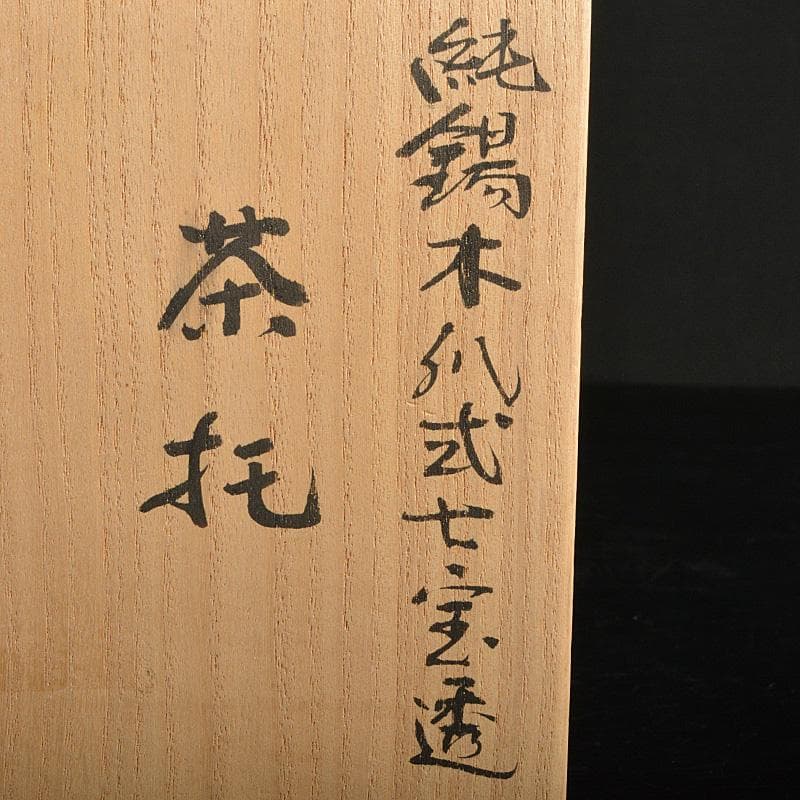 純錫木爪式七宝透
茶托